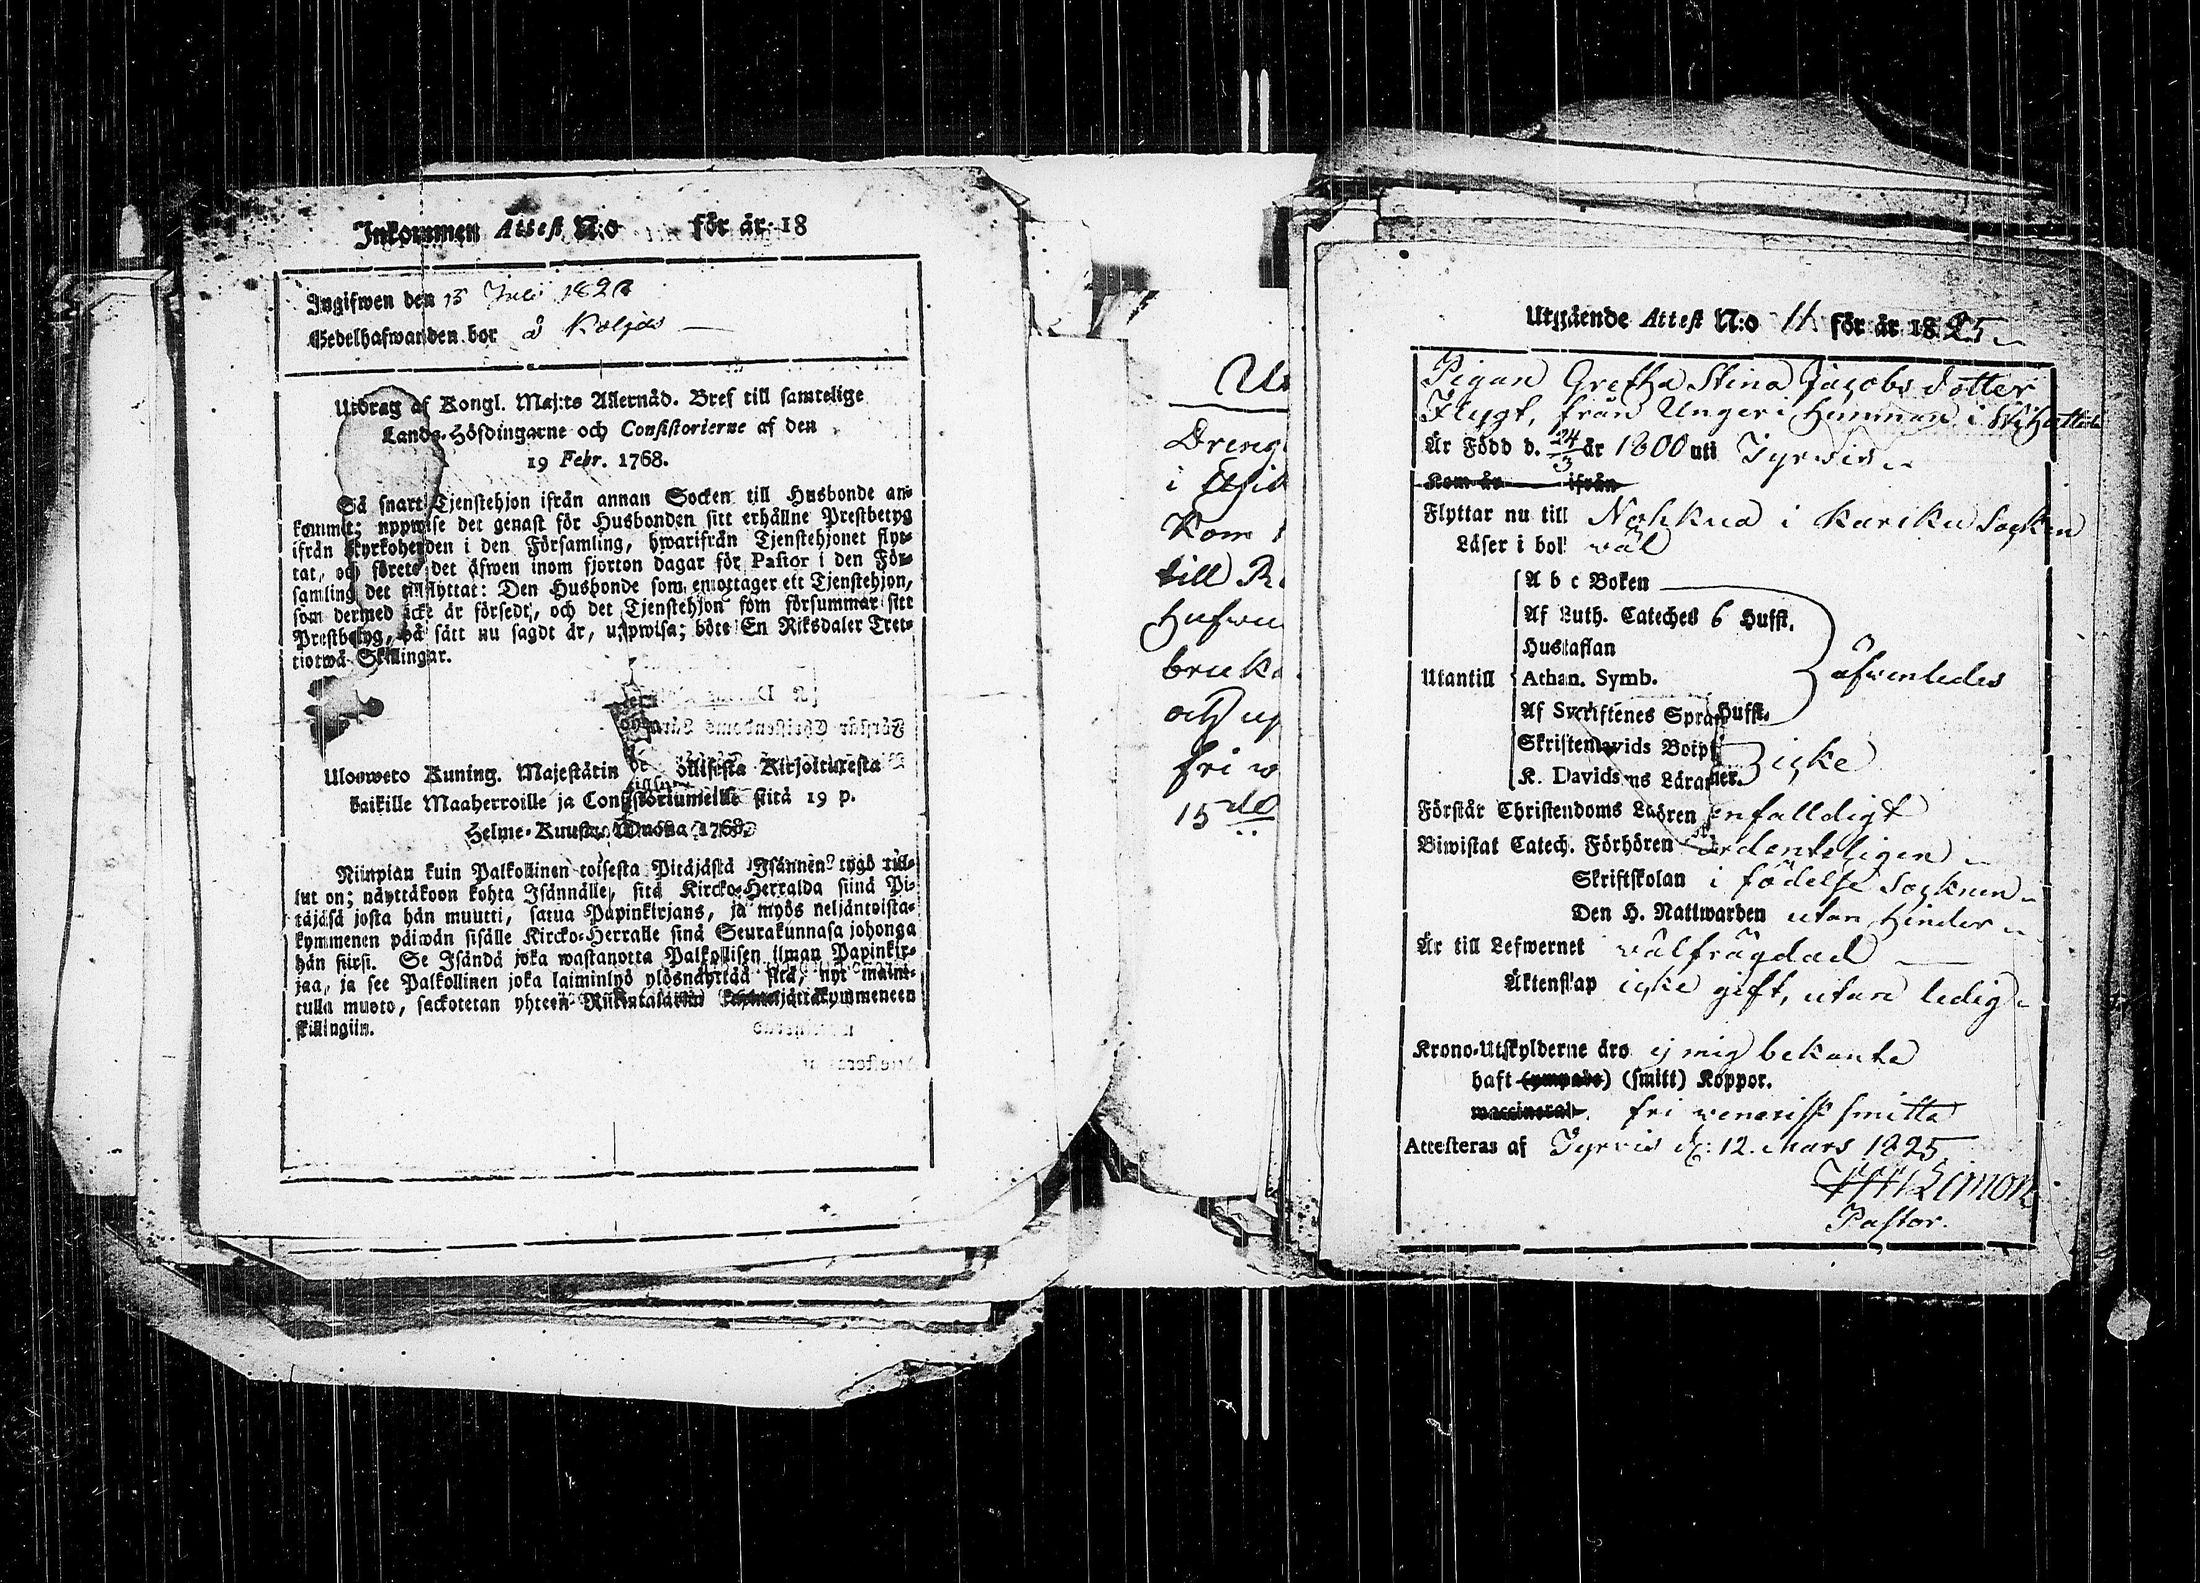 Inkommen Attest N:o för år 18
Ingifwen den 15 Juli 182
Bedelhafwanden bor å Koljas
Utdrag af Kongl. Maj:ts Allernåd. Bref till samtelige
Lands-Höfdingarne och Consistorierne af den
19 Febr. 1768.
Så snart Tjenstehjon ifrån annan Socken till Husbonde an-
kommit; uppwise det genast för Husbonden sitt erhållne Prestbetyg
ifrån Kyrkoherden i den Församling, hwarifrån Tjenstehjonet flyt-
tat, och förete det äfwen inom fjorton dagar för Pastor i den För-
samling det tillflyttat: Den Husbonde som emottager ett Tjenstehjon,
som dermed icke är försedt, och det Tjenstehjon som försummar sitt
Prestbetyg, på sätt nu sagdt är, uppwisa; böte En Riksdaler Tret-
tiotwå Skillingar.
Ulosweto Kuning. Majestätin Kirjoituxesta
kaikille Maaherroille ja Consistoriumeille siitä 19 p.
Helme-Kuusa Wuonna 1768.
Niinpian kuin Palkollinen toisesta Pitäjästä Isännen tygö tul-
lut on; näyttäkoon kohta Isännälle, sitä Kircko-Herralda siinä Pi-
täjäsä josta hän muutti, saatua Papinkirjans, ja myös neljäntoista-
kymmenen päiwän sisälle Kircko-Herralle siinä Seurakunnasa johonga
hän siirsi. Se Isändä joka wastanotta Palkollisen ilman Papinkir-
jaa, ja see Palkollinen joka laiminlyö ylösnäyttää sitä, nyt maini-
tulla muoto, sackotetan yhteen Riikintalariin jättäkymmeneen
skillingiin.
Dreng
i
Kom
till
bruk
och up
fri w
15 do
Utgående Attest N:o 11 för år 1825
Pigan Gretha Stina Jacobs dotter
Flygt, från Ungeri Hemman i
Är Född d. 24/3 år 1800 uti Tyrvis
Kom år ifrån
Flyttar nu till Nohkua i Karku Socken
Läser i bok wäl
A b c Boken
Af Luth. Cateches 6 Hufst.
Hustaflan
Utantill Athan. Symb. äfwenledes
Af Skriftenes Språk Hufst.
K. Davids icke
Förstår Christendoms Läran enfalldigt
Biwistat Catech. Förhören ordenteligen
Skriftskolan i födelse Socknen
Den H. Nattwarden utan hinder
Är till Lefwernet wälfrägdad
Äktenskap icke gift, utan ledig
Krono-Utskylderne äro ej mig bekante
haft (ympade) (smitt) Koppor.
waccinerad fri venerisk smitta
Attesteras af Tyrvis d. 12. Mars 1825
Pastor.